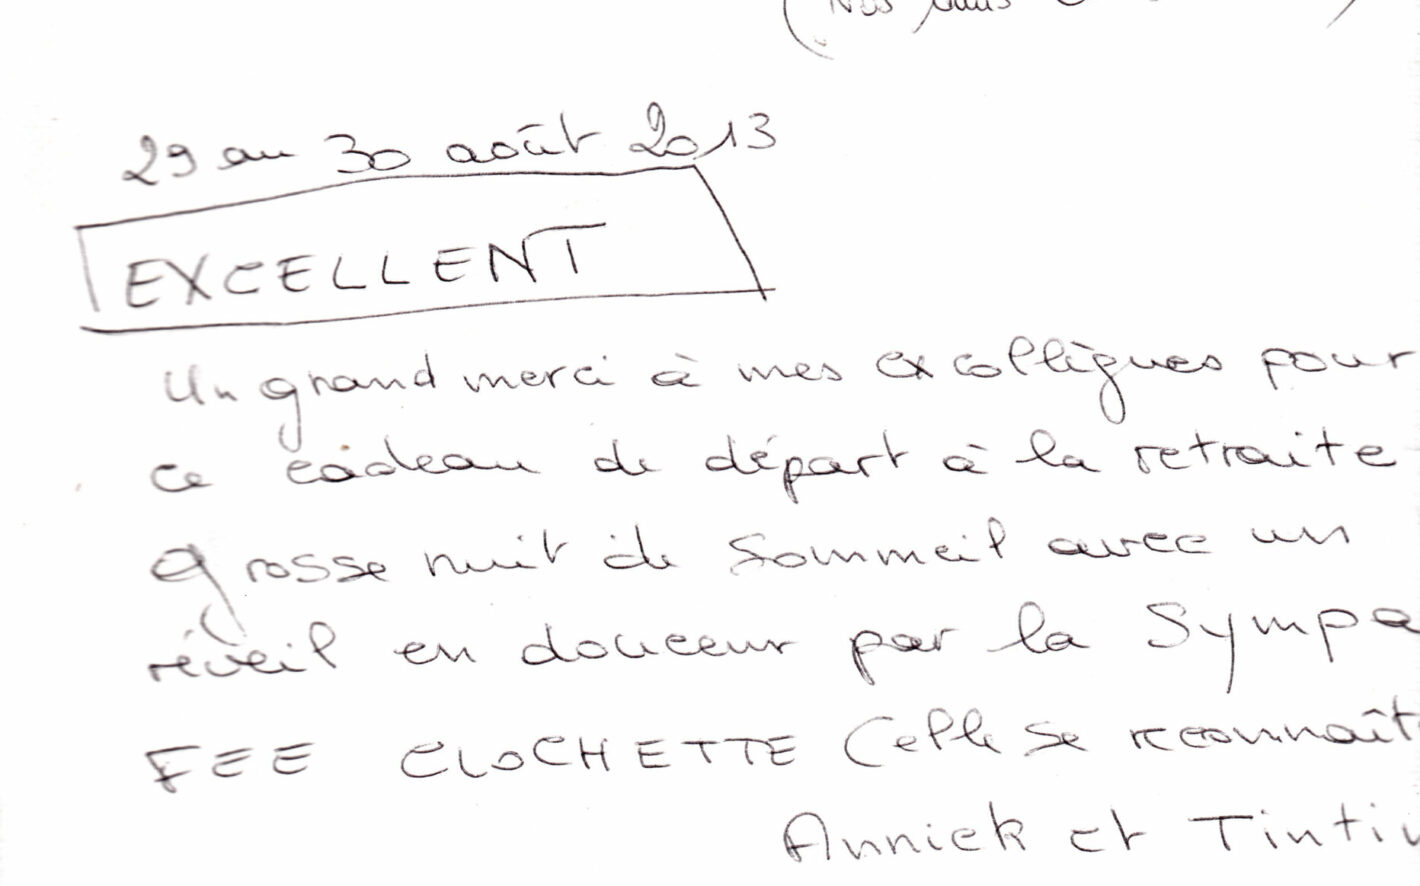 (Nos
29 au 30 août 2013
EXCELLENT
Un grand merci à mes ex collègues pour
ce cadeau de départ à la retraite
Grosse nuit de sommeil avec un
réveil en douceur par la Sympa
FEE CLOCHETTE (elle se reconnaît
Annick et Tintin